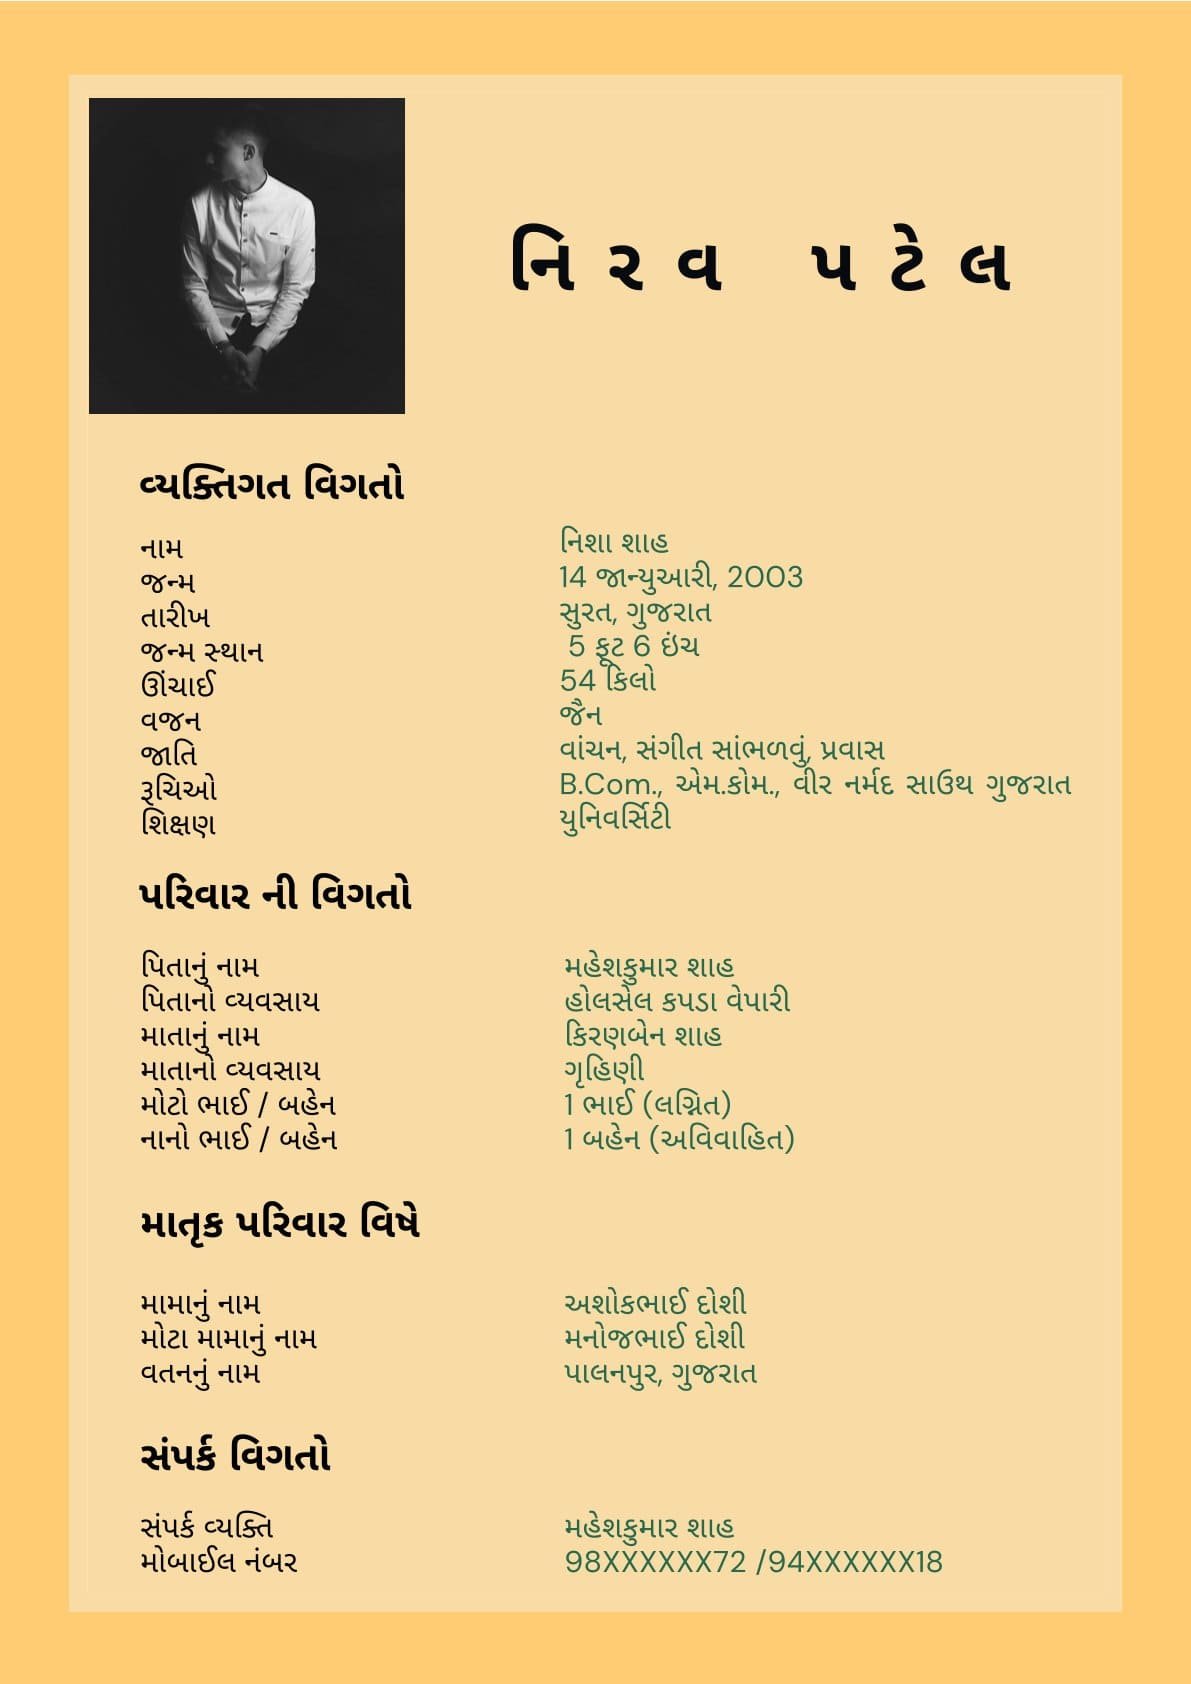 નિરવ પટેલ
વ્યક્તિગત વિગતો
નામ
જન્મ
તારીખ
જન્મ સ્થાન
ઊંચાઈ
વજન
જાતિ
રૂચિઓ
શિક્ષણ
નિશા શાહ
14 જાન્યુઆરી, 2003
સુરત, ગુજરાત
5 ફૂટ 6 ઇંચ
54 કિલો
જૈન
વાંચન, સંગીત સાંભળવું, પ્રવાસ
B.Com., એમ.કોમ., વીર નર્મદ સાઉથ ગુજરાત
યુનિવર્સિટી
પરિવાર ની વિગતો
પિતાનું નામ મહેશકુમાર શાહ
પિતાનો વ્યવસાય હોલસેલ કપડા વેપારી
માતાનું નામ કિરણબેન શાહ
માતાનો વ્યવસાય ગૃહિણી
મોટો ભાઈ / બહેન 1 ભાઈ (લગ્નિત)
નાનો ભાઈ / બહેન 1 બહેન (અવિવાહિત)
માતૃક પરિવાર વિષે
મામાનું નામ અશોકભાઈ દોશી
મોટા મામાનું નામ મનોજભાઈ દોશી
વતનનું નામ પાલનપુર, ગુજરાત
સંપર્ક વિગતો
સંપર્ક વ્યક્તિ મહેશકુમાર શાહ
મોબાઈલ નંબર 98XXXXXX72 /94XXXXXX18